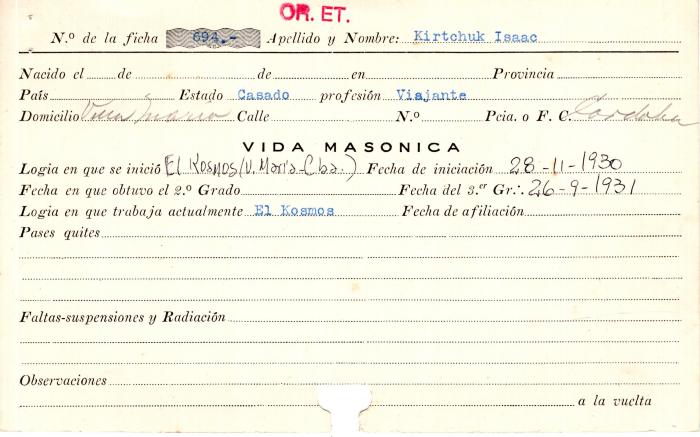 OR. ET.
N.º de la ficha 694.- Apellido y Nombre: Kirtchuk Isaac
Nacido el de de en Provincia
País Estado Casado profesión Viajante
Domicilio Villa María Calle N.º Pcia. o F. C. Cordoba
VIDA MASONICA
Logia en que se inició El Kosmos (V. María - Cba.) Fecha de iniciación 28-11-1930
Fecha en que obtuvo el 2.º Grado Fecha del 3.er Gr.·. 26-9-1931
Logia en que trabaja actualmente El Kosmos Fecha de afiliación
Pases quites
Faltas-suspensiones y Radiación
Observaciones
a la vuelta